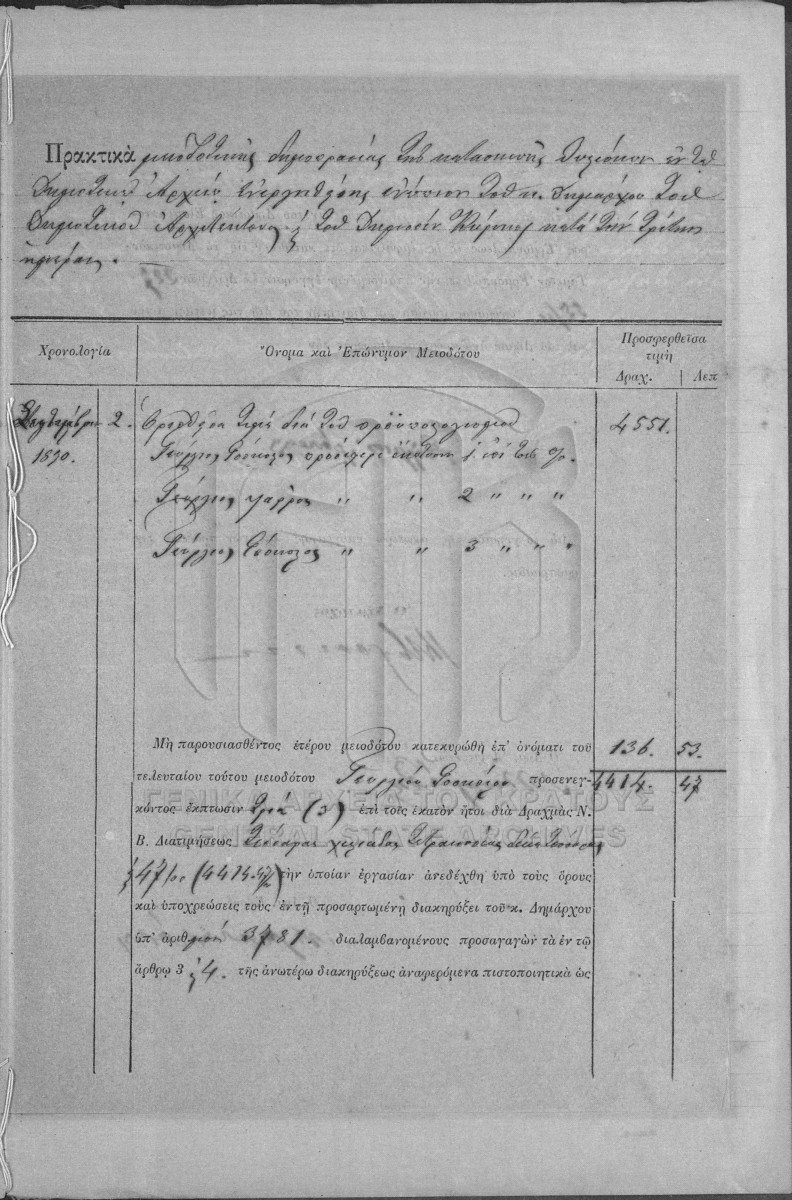 Πρακτικὰ μειοδοτικῆς δημοπρασίας τῆς κατασκευῆς ἐν τῷ
Δημοτικῷ Ἀρχείῳ ἐνεργηθείσης ἐνώπιον τοῦ κ. Δημάρχου τοῦ
Δημοτικοῦ Ἀρχιτέκτονος τοῦ Δημοσίου Κήρυκος κατὰ τὴν τρίτην
ἡμέραν.
Χρονολογία
Ὄνομα καὶ Ἐπώνυμον Μειοδότου
Προσφερθεῖσα
τιμὴ
Δραχ. Λεπ
Σεπτεμβρίου 2. Ὁρισθεῖσα τιμὴ διὰ τοῦ προϋπολογισμοῦ 4551.
1890. Γεώργιος προσφέρει ἔκπτωσιν 1. ἐπὶ τοῖς %.
Γεώργιος " " 2 " " "
Γεώργιος " " 3 " " "
Μὴ παρουσιασθέντος ἑτέρου μειοδότου κατεκυρώθη ἐπ' ὀνόματι τοῦ 136. 53.
τελευταίου τούτου μειοδότου Γεωργίου προσενεγ- 4414. 47
κόντος ἔκπτωσιν τρία (3) ἐπὶ τοῖς ἑκατὸν ἤτοι διὰ Δραχμὰς Ν.
Β. Διατιμήσεως Τέσσαρας χιλιάδας τετρακοσίας δεκατέσσαρας
47/οο (4414.47/) τὴν ὁποίαν ἐργασίαν ἀνεδέχθη ὑπὸ τοὺς ὅρους
καὶ ὑποχρεώσεις τοὺς ἐν τῇ προσαρτωμένῃ διακηρύξει τοῦ κ. Δημάρχου
ὑπ' ἀριθμὸν 3781. διαλαμβανομένους προσαγαγὼν τὰ ἐν τῷ
ἄρθρῳ 3 4. τῆς ἀνωτέρω διακηρύξεως ἀναφερόμενα πιστοποιητικὰ ὡς
ΓΕΝΙΚΑ ΑΡΧΕΙΑ ΤΟΥ ΚΡΑΤΟΥΣ
GENERAL STATE ARCHIVES